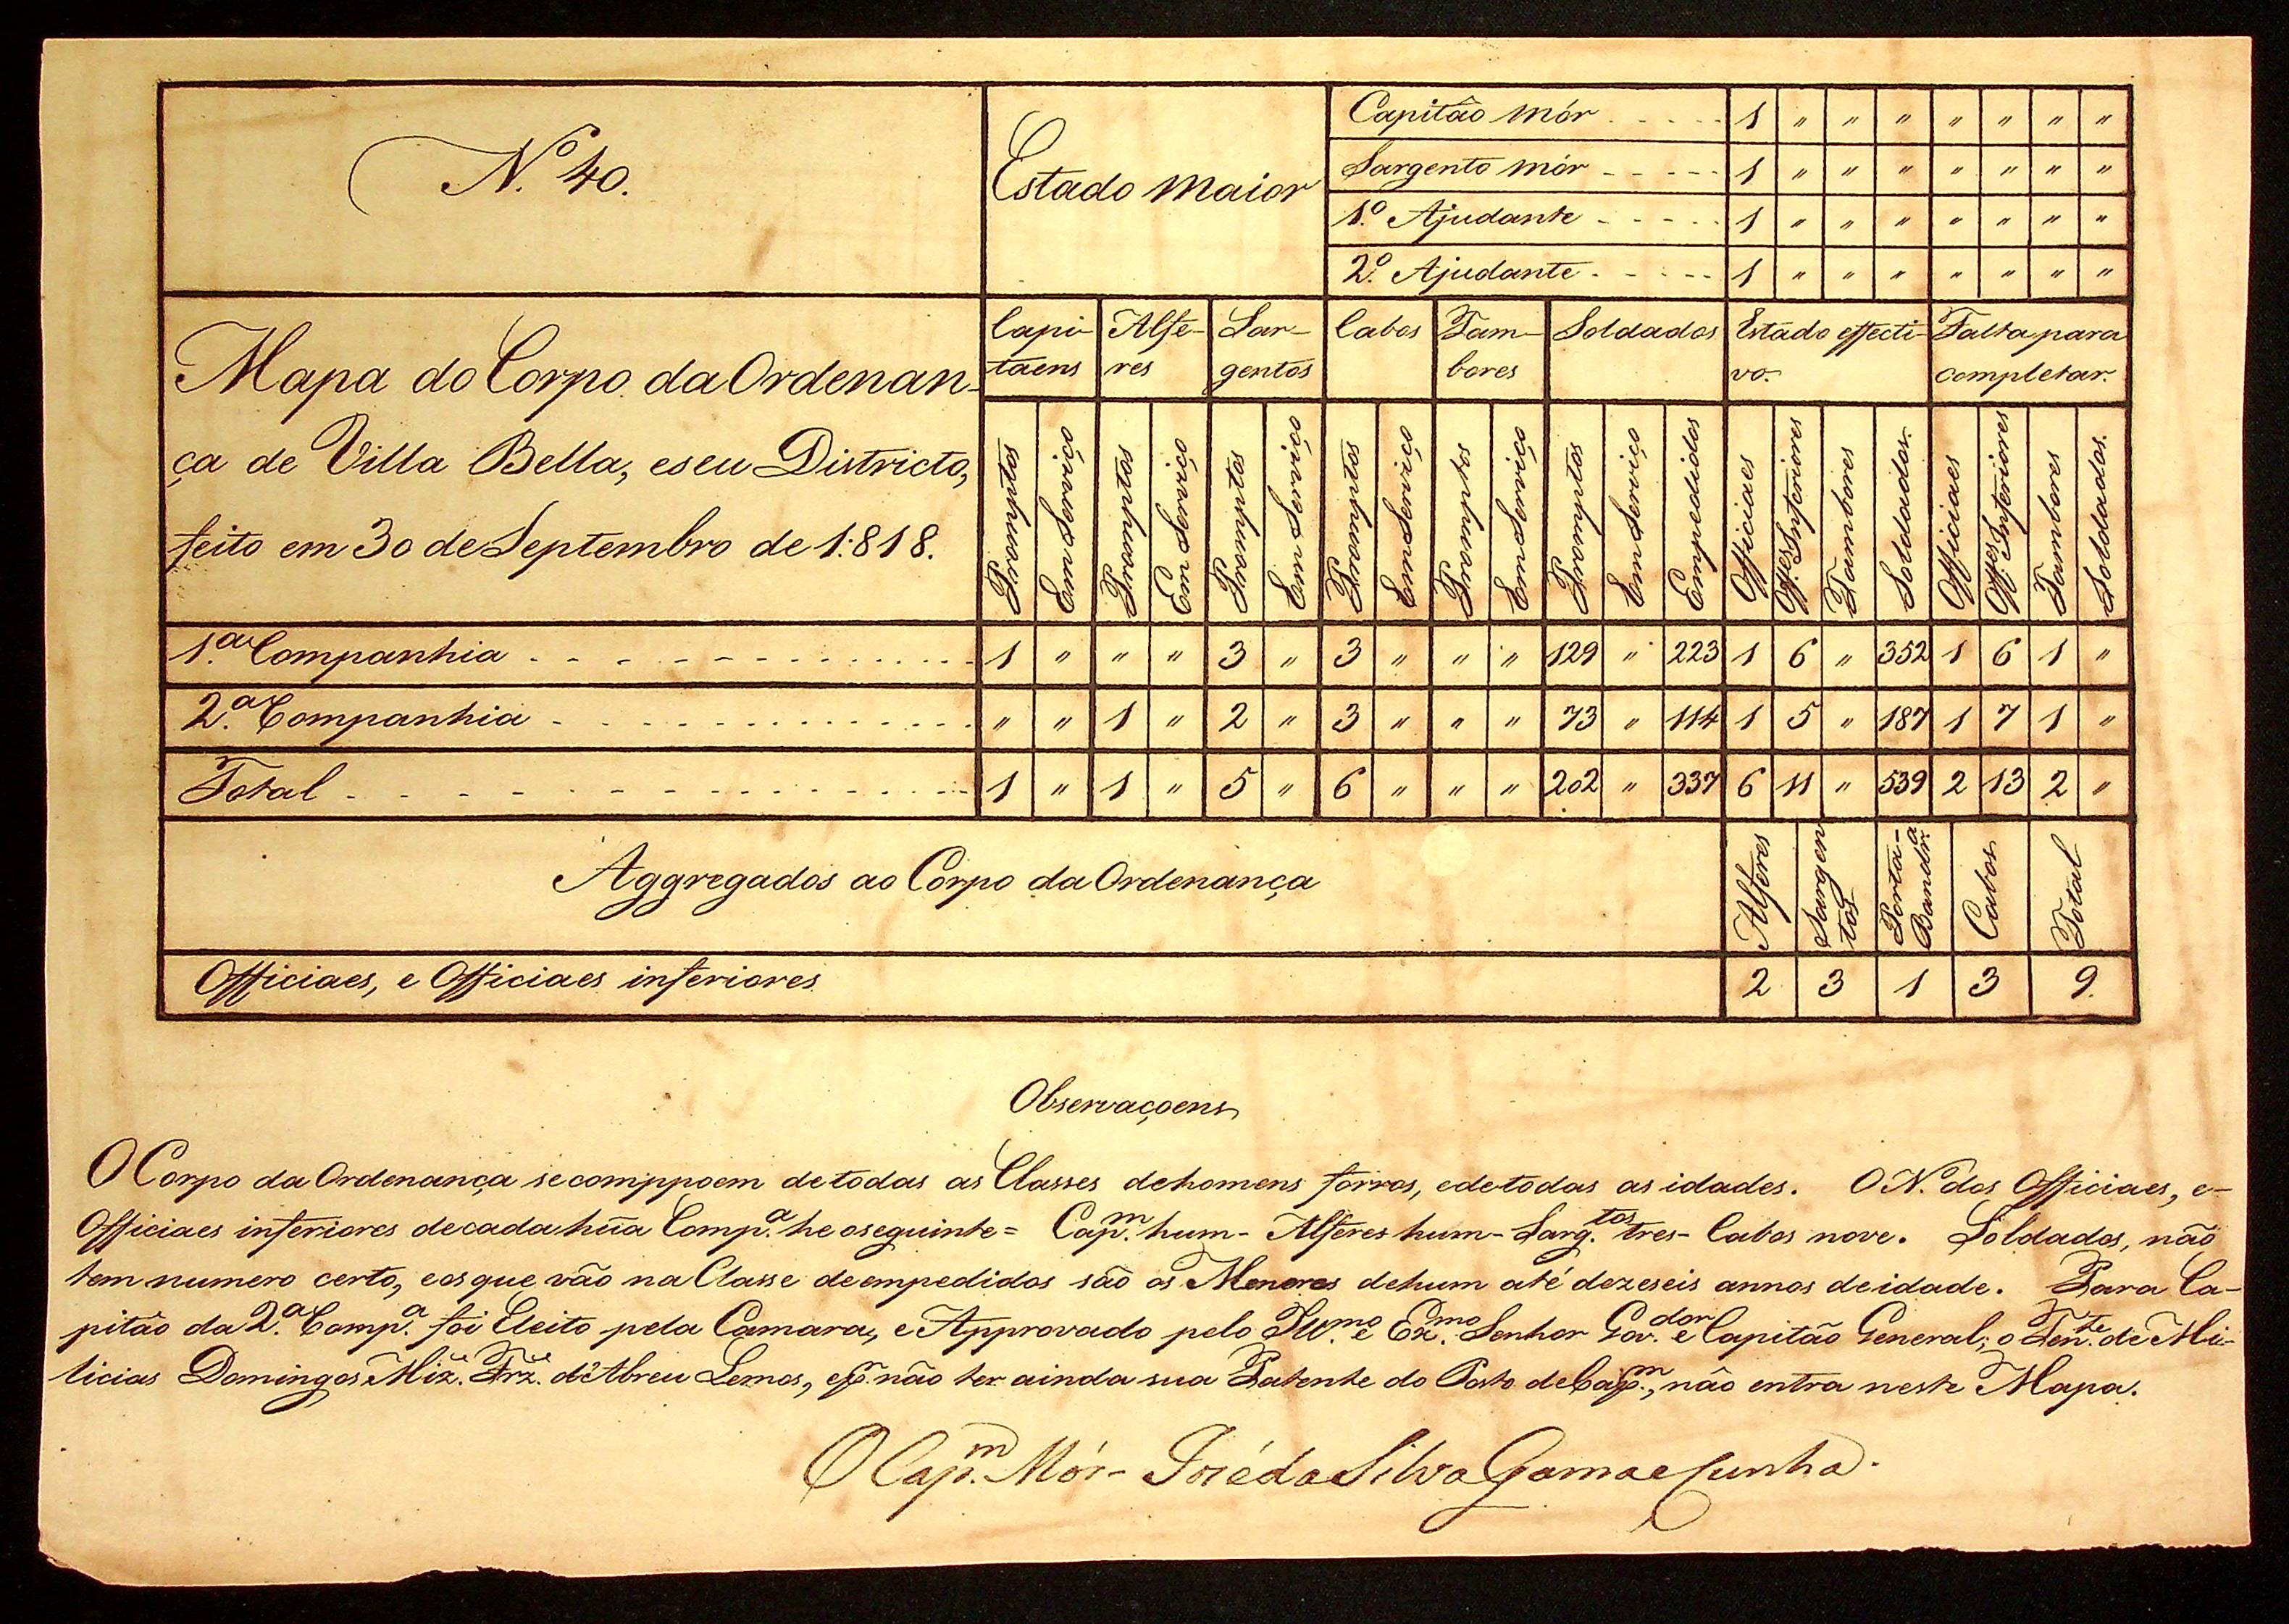 N.º 40.
Estado Maior
Capitão Mór - - - - - 1 " " " " " " "
Sargento Mór - - - - - 1 " " " " " " "
1.º Ajudante - - - - - 1 " " " " " " "
2.º Ajudante - - - - - 1 " " " " " " "
Mapa do Corpo da Ordenan-
ça de Villa Bella, e seu Districto,
feito em 30 de Septembro de 1:818.
Capi-
taens
Alfe-
res
Sar-
gentos
Cabos
Tam-
bores
Soldados
Estado effecti-
vo.
Falta para
completar.
Promptos
Em Serviço
Promptos
Em Serviço
Promptos
Em Serviço
Promptos
Em Serviço
Promptos
Em Serviço
Promptos
Em Serviço
Empedidos
Officiaes
Off.es Inferiores
Tambores
Soldados.
Officiaes
Off.es Inferiores
Tambores
Soldados.
1.ª Companhia - - - - - - - - - - - - - - 1 " " " 3 " 3 " " " 129 " 223 1 6 " 352 1 6 1 "
2.ª Companhia - - - - - - - - - - - - - - " " 1 " 2 " 3 " " " 73 " 114 1 5 " 187 1 7 1 "
Total - - - - - - - - - - - - - - - - 1 " 1 " 5 " 6 " " " 202 " 337 6 11 " 539 2 13 2 "
Aggregados ao Corpo da Ordenança
Alferes
Sargen
tos
Porta-
Bandr.ª
Cabos
Total
Officiaes, e Officiaes inferiores 2 3 1 3 9.
Observaçoens
O Corpo da Ordenança se comppoem de todas as Classes de homens forros, e de todas as idades. O N.º dos Officiaes, e-
Officiaes inferiores de cada hũa Comp.ª he o seguinte = Cap.m hum - Alferes hum - Sarg.tos tres - Cabos nove. Soldados, não
tem numero certo, e os que vão na Classe de empedidos são os Menores de hum até dezeseis annos de idade. Para Ca-
pitão da 2.ª Comp.ª foi Eleito pela Camara, e Approvado pelo Ill.mo e Ex.mo Senhor Gov.dor e Capitão General; o Ten.te de Mi-
licias Domingos Miz. Frz. d'Abreu Lemos, e p.r não ter ainda sua Patente do Posto de Cap.m, não entra neste Mapa.
O Cap.m Mór - José da Silva Gama e Cunha.